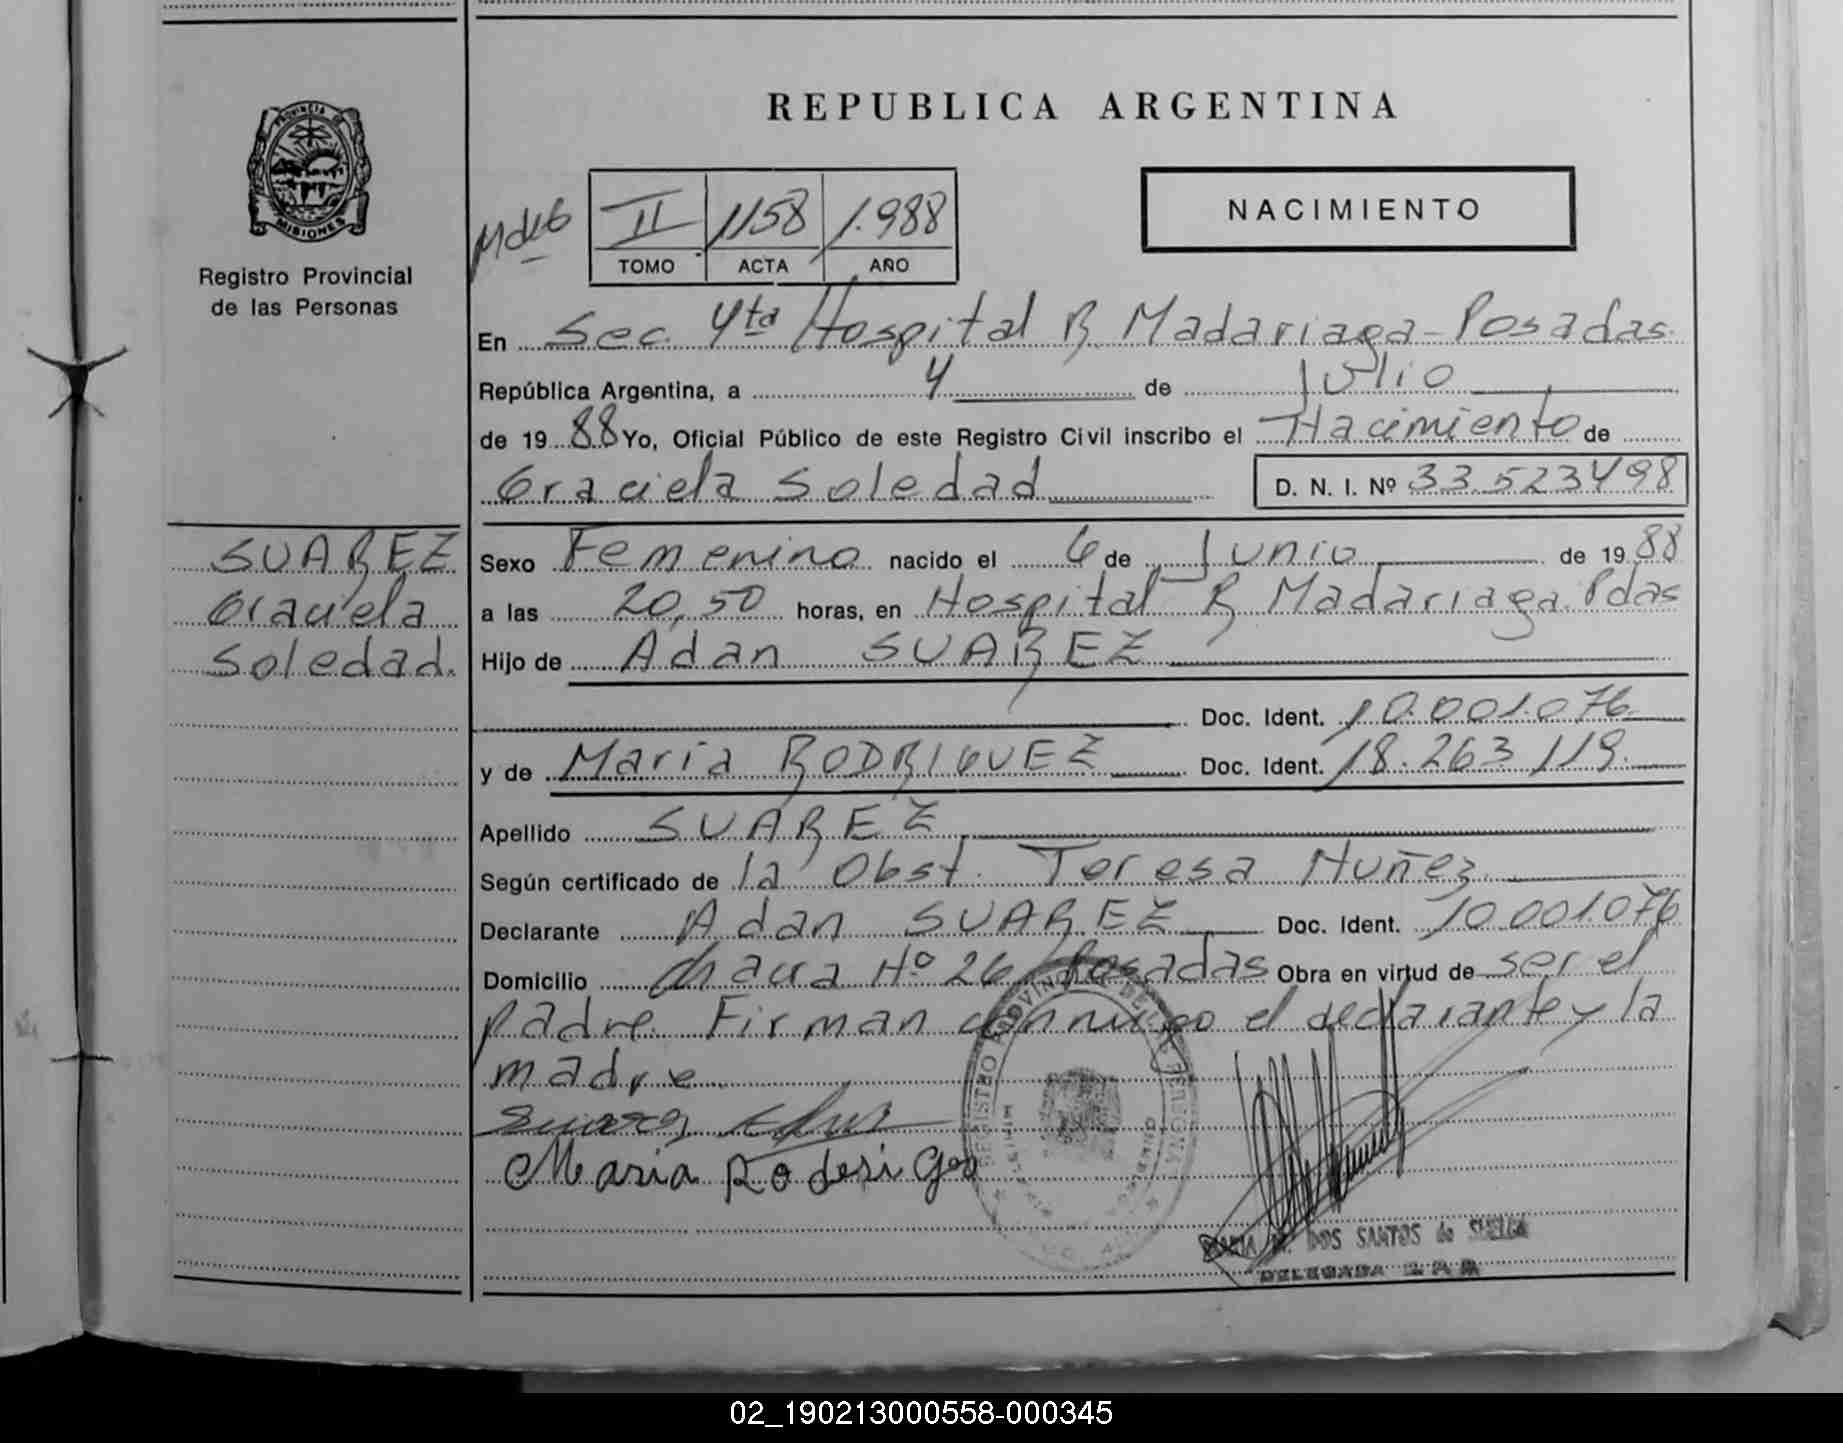 REPUBLICA ARGENTINA
PROVINCIA DE
MISIONES
Registro Provincial
de las Personas
II 1158 1.988
TOMO ACTA AÑO
NACIMIENTO
En Sec. 4ta Hospital R Madariaga - Posadas
República Argentina, a 4 de Julio
de 19 88 Yo, Oficial Público de este Registro Civil inscribo el Nacimiento de
Graciela Soledad D. N. I. Nº 33.523498
SUAREZ
Graciela
Soledad.
Sexo Femenino nacido el 6 de Junio de 19 88
a las 20,50 horas, en Hospital R Madariaga. Pdas
Hijo de Adan SUAREZ
Doc. Ident. 10.001.076
y de Maria RODRIGUEZ Doc. Ident. 18.263.119.
Apellido SUAREZ
Según certificado de la Obst. Teresa Nuñez
Declarante Adan SUAREZ Doc. Ident. 10.001.076
Domicilio Chacra Nº 26 Posadas Obra en virtud de ser el
padre. Firman conmigo el declarante y la
madre.
Suarez
Maria Rodrsi Gez
DOS SANTOS de
DELEGADA
02_190213000558-000345